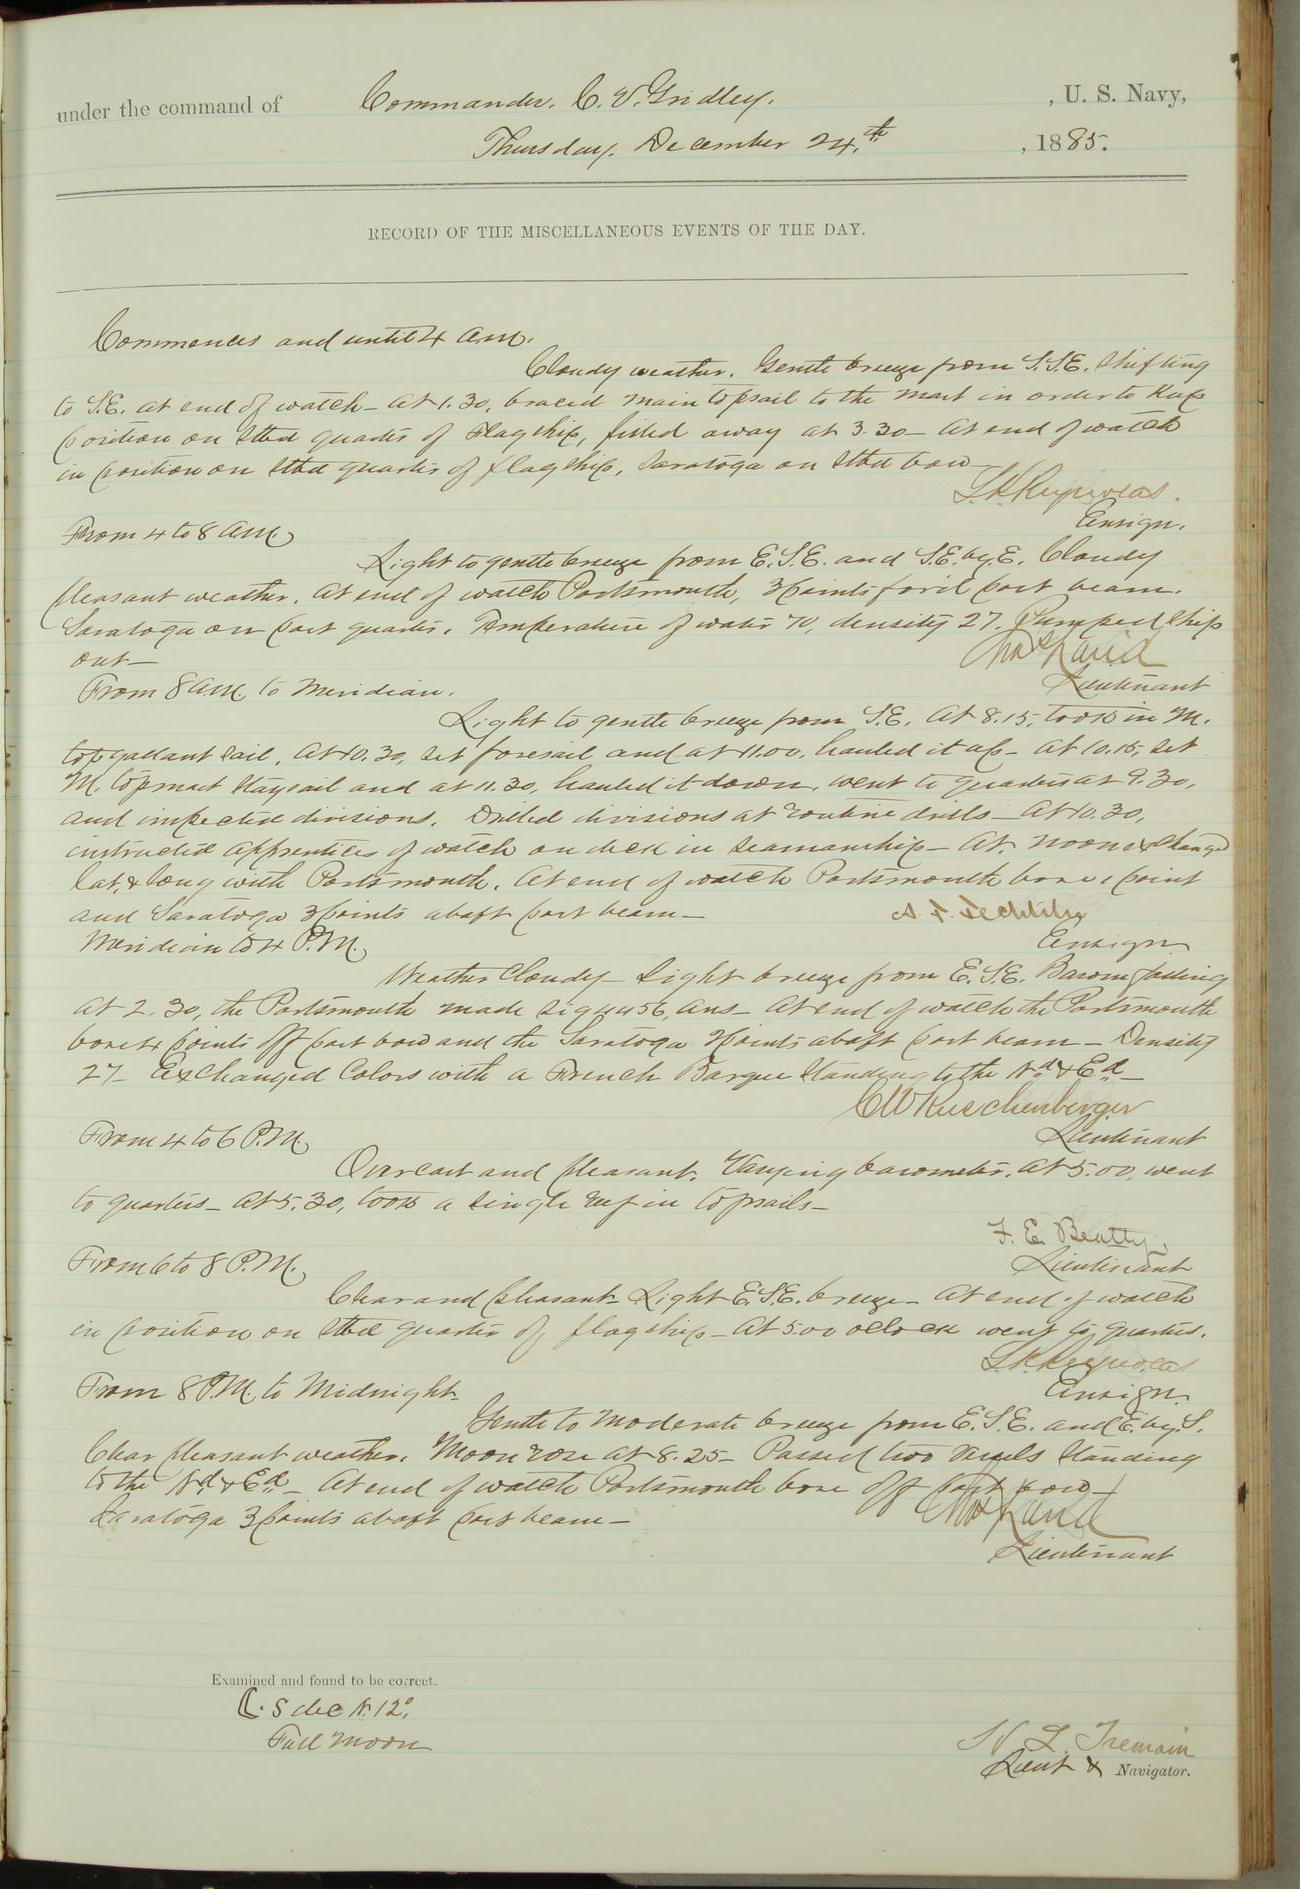 under the command of Commander. C. V. Gridley. , U. S. Navy,
Thursday. December 24.th , 1885.
RECORD OF THE MISCELLANEOUS EVENTS OF THE DAY.
Commences and until 4 A.M.
Cloudy weather. Gentle breeze from S.S.E. shifting
to S.E. at end of watch_ At 1.30, braced main topsail to the mast in order to keep
position on Stbd quarter of Flagship, filled away at 3.30_ At end of watch
in position on Stbd quarter of flagship, Saratoga on Stbd bow_
L.K. Reynolds.
Ensign.
From 4 to 8 A.M.
Light to gentle breeze from E.S.E. and S.E. by E. Cloudy
pleasant weather. At end of watch Portsmouth, 3 points for'd port beam.
Saratoga on port quarter. Temperature of water 70, density 27. Pumped ship
out_
Lieutenant
From 8 A.M. to Meridian.
Light to gentle breeze from S.E. At 8.15, took in M.
topgallant sail. At 10.30, set foresail and at 11.00, hauled it up_ At 10.15, set
M. topmast staysail and at 11.30, hauled it down, went to quarters at 9.30,
and inspected divisions. Drilled divisions at routine drills_ At 10.30,
instructed apprentices of watch on deck in seamanship_ At. noon exchanged
lat. & long with Portsmouth. At end of watch Portsmouth bore 1 point
and Saratoga 3 points abaft port beam_
Ensign
Meridian to 4 P.M.
Weather Cloudy_ Light breeze from E.S.E. Barom falling
At 2.30, the Portsmouth made sig 4456, ans_ At end of watch the Portsmouth
bore 4 points off port bow and the Saratoga 2 points abaft port beam_ Density
27_ Exchanged Colors with a French Barque standing to the N.d & E.d_
C W Ruschenberger
Lieutenant
From 4 to 6 P.M.
Overcast and pleasant. Varying barometer. At 5.00, went
to quarters_ At 5.30, took a single reef in topsails_
F. E. Beatty,
Lieutenant
From 6 to 8 P.M.
Clear and pleasant_ Light E.S.E. breeze_ At end of watch
in position on Stbd quarter of flagship_ At 5.00 oclock went to quarters.
L.K. Reynolds
Ensign.
From 8 P.M. to Midnight_
Gentle to moderate breeze from E.S.E. and E. by S.
Clear pleasant weather. Moon rose at 8.25_ Passed two vessels standing
to the N.d & E.d_ At end of watch Portsmouth bore off port bow_
Saratoga 3 points abaft port beam_
Lieutenant
Examined and found to be correct.
S dec N. 12°.
Full Moon
H. L. Tremain
Lieut & Navigator.